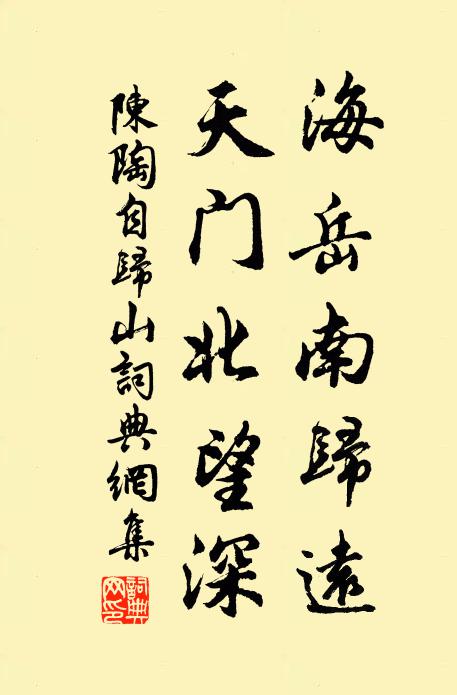 海岳南歸遠
天门北望深
陳陶自歸山詞典網集
詞典
网印